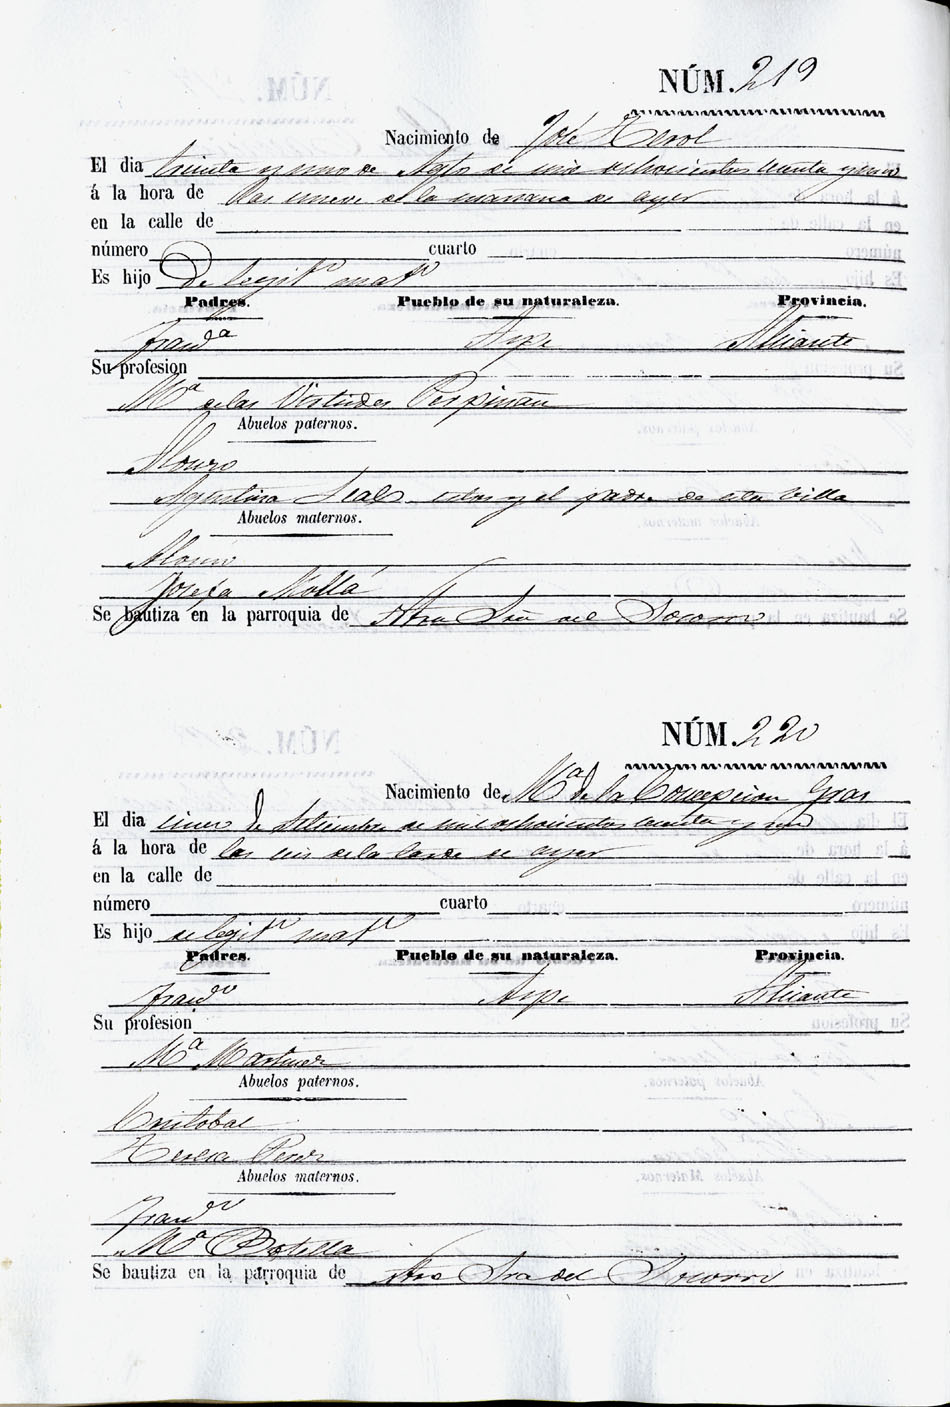 NÚM. 219
Nacimiento de José
El dia treinta y uno de Agto de mil ochocientos y uno
á la hora de las nueve de la manana de ayer
en la calle de
número cuarto
Es hijo de legitº matº
Padres. Pueblo de su naturaleza. Provincia.
Aspe Alicante
Su profesion
Mª de las Virtudes Perpiñan
Abuelos paternos.
Agustina y el padre de esta villa
Abuelos maternos.
Josefa Mollá
Se bautiza en la parroquia de Ntra Sra del Socorro
NÚM. 220
Nacimiento de Mª de la Concepcion Gras
El dia cinco de Setiembre de mil ochocientos y uno
á la hora de las seis de la tarde de ayer
en la calle de
número cuarto
Es hijo de legitº matº
Padres. Pueblo de su naturaleza. Provincia.
Franº Aspe Alicante
Su profesion
Mª Martinez
Abuelos paternos.
Cristobal
Teresa Perez
Abuelos maternos.
Franº
Mª Botella
Se bautiza en la parroquia de Ntra Sra del Socorro